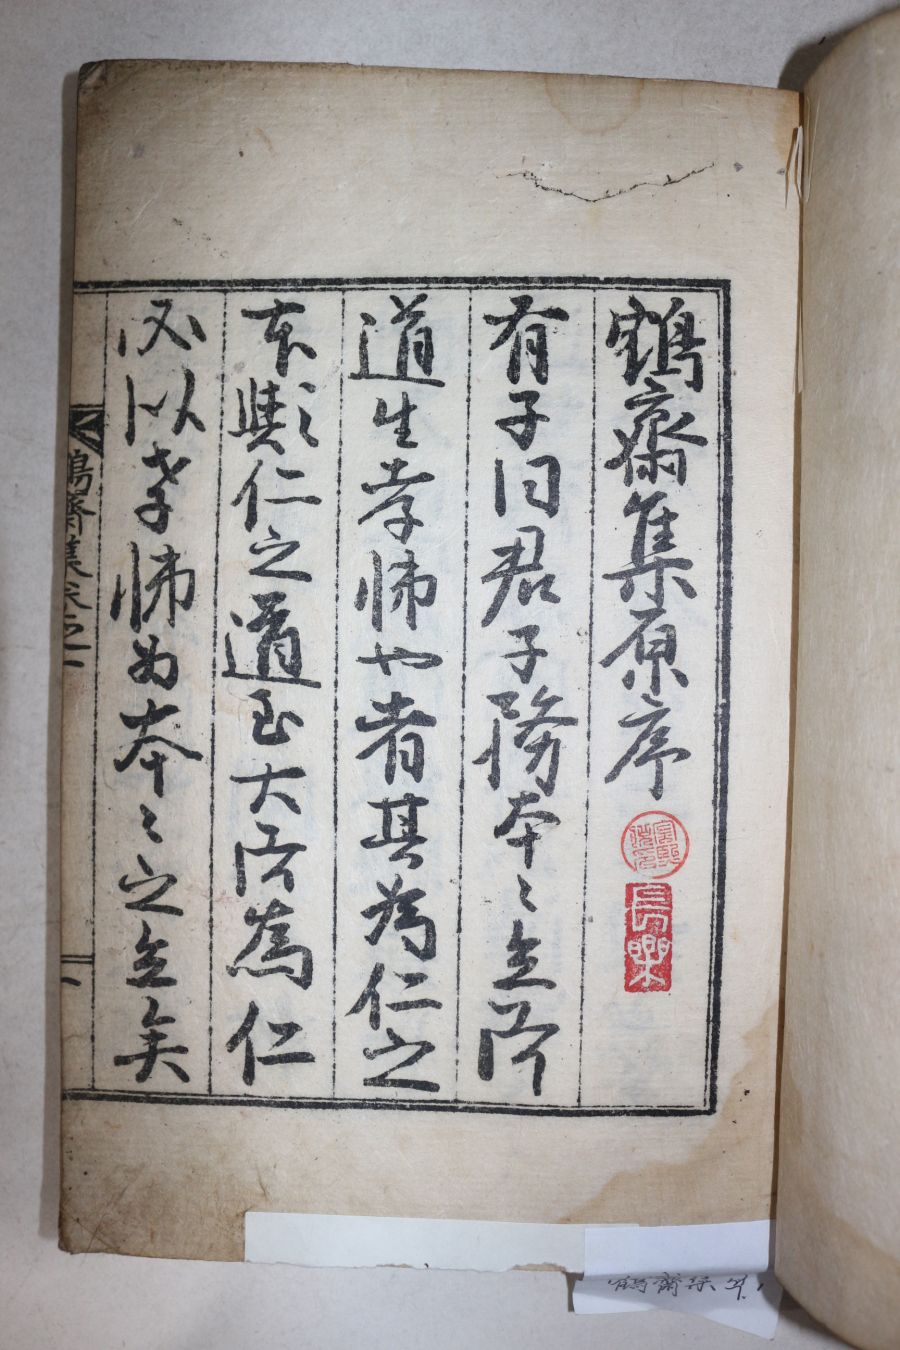 鶴齋集原序
長樂
有子曰君子務本〻立而
道生孝悌也者其為仁之
本歟仁之道至大而為仁
必以孝悌為本〻之立矣
鶴齋集卷之一
鶴齋集